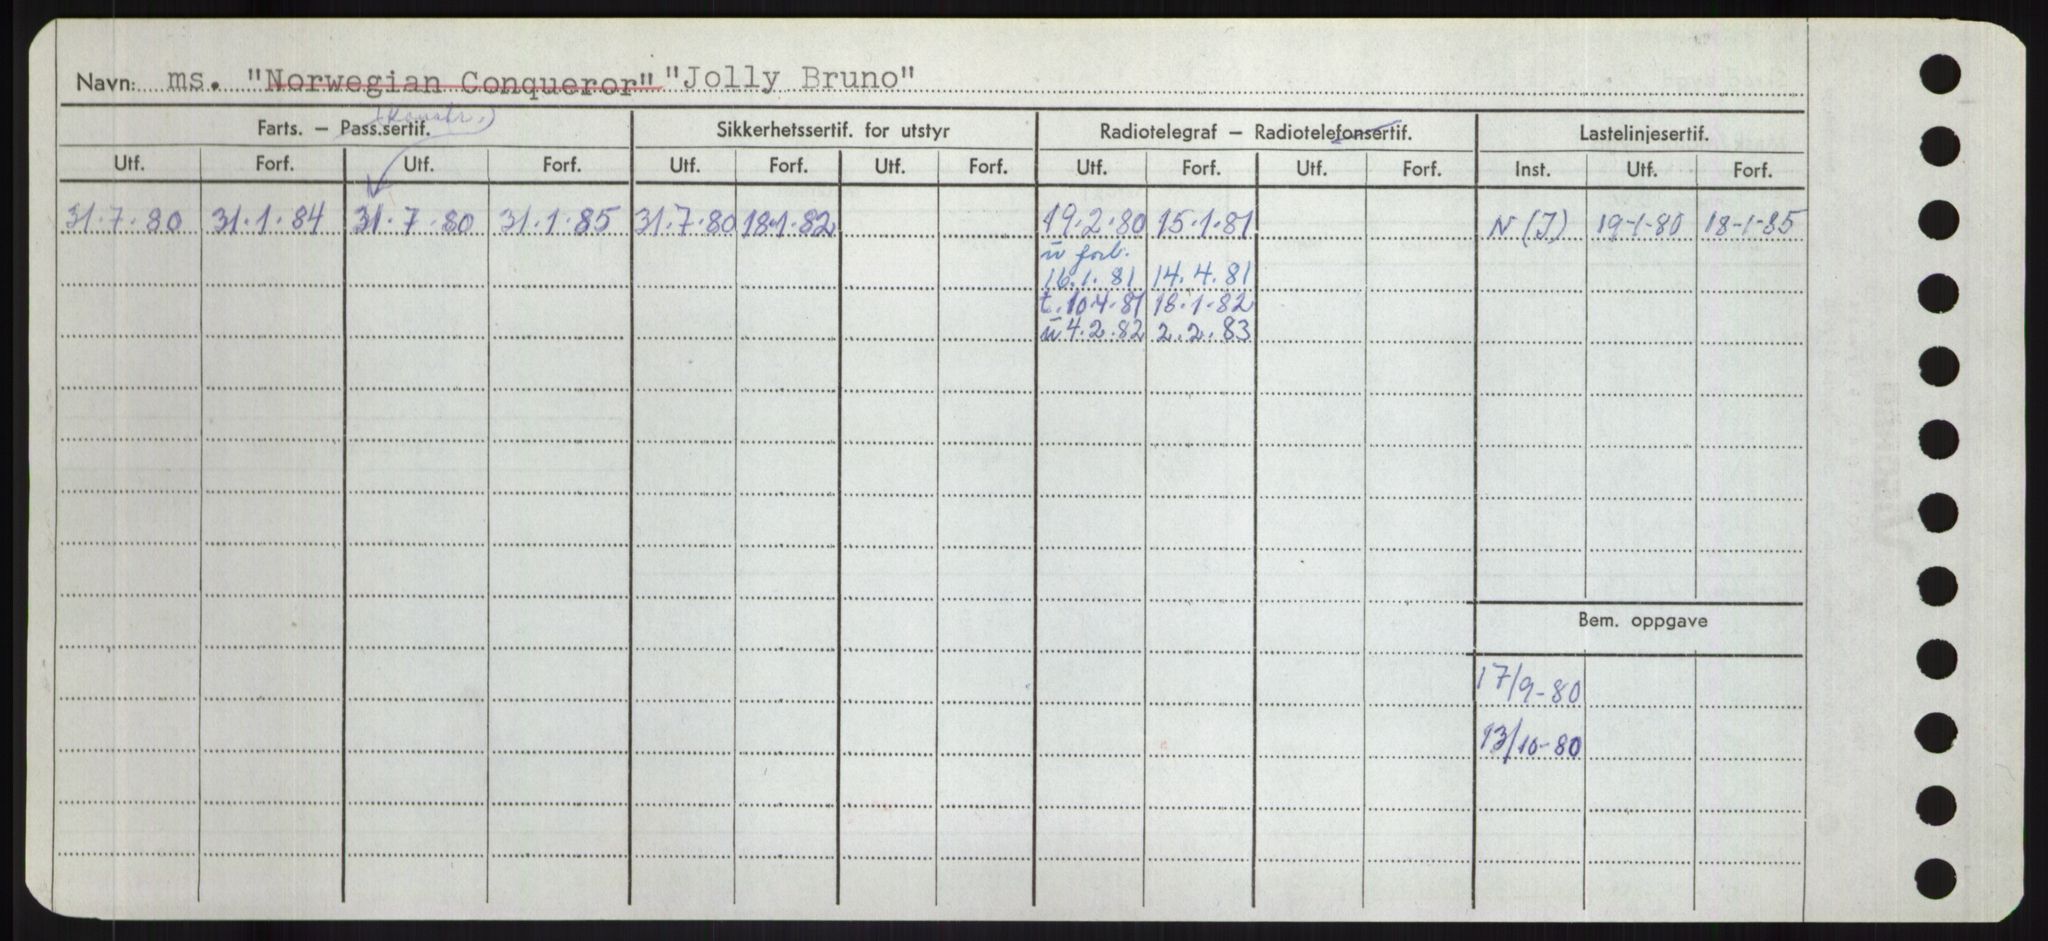 Navn: ms. "Norwegian Conqueror" "Jolly Bruno"
(Konstr.)
Farts. — Pass.sertif. Sikkerhetssertif. for utstyr Radiotelegraf — Radiotelefonsertif. Lastelinjesertif.
Utf. Forf. Utf. Forf. Utf. Forf. Utf. Forf. Utf. Forf. Utf. Forf. Inst. Utf. Forf.
31.7.80 31.1.84 31.7.80 31.1.85 31.7.80 18.1.82 19.2.80 15.1.81 N (I) 19-1-80 18-1-85
ū forl.
16.1.81 14.4.81
t.10.4.81 18.1.82
ū 4.2.82 2.2.83
Bem. oppgave
17/9-80
13/10-80